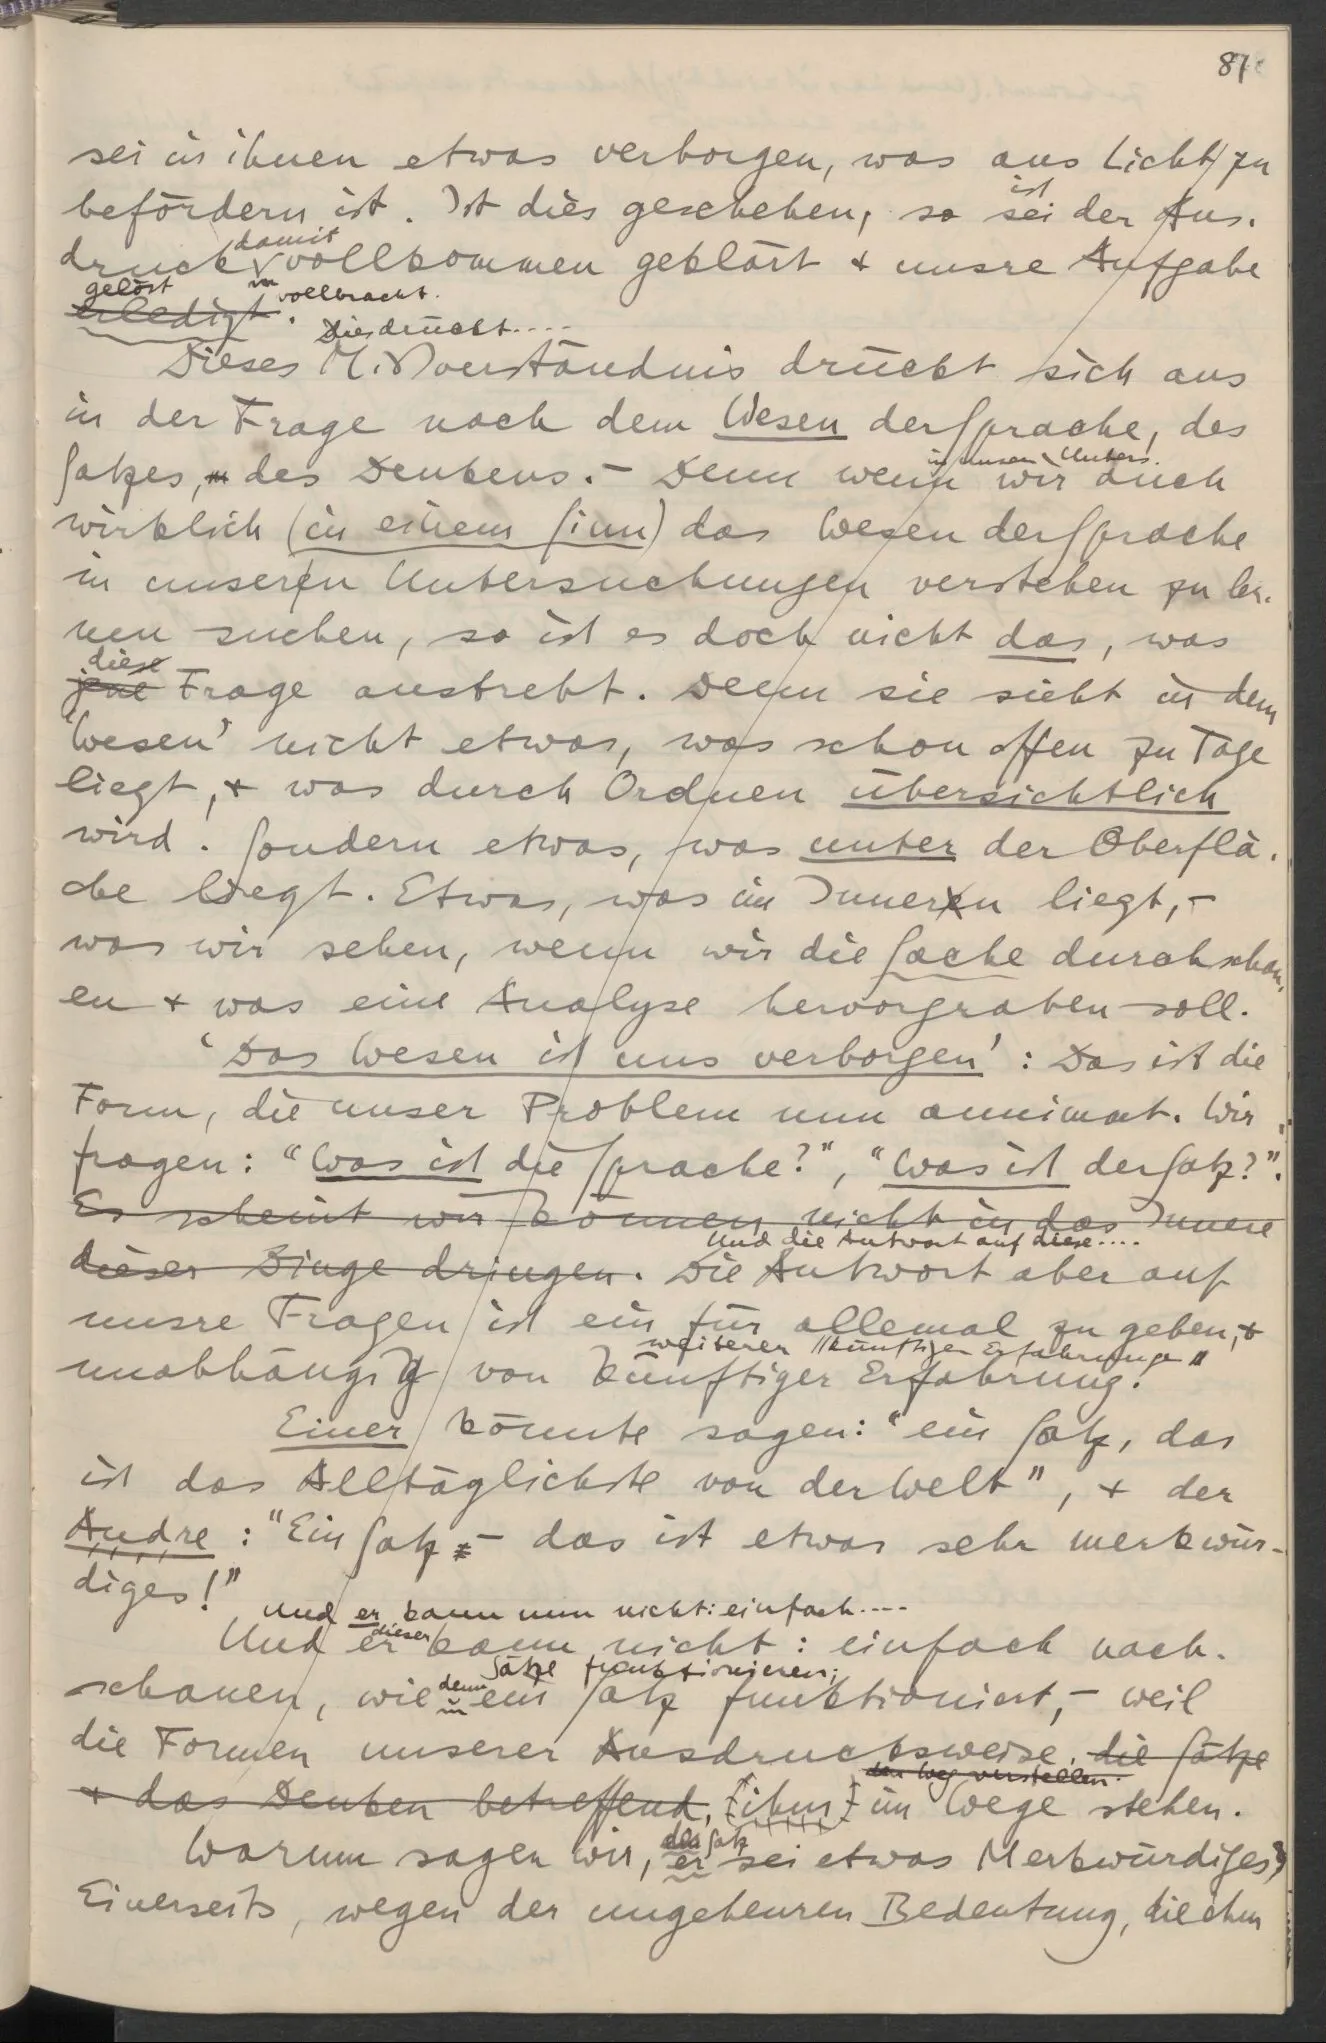 87
sei in ihnen etwas verborgen, was ans Licht zu
ist
befördern ist. Ist dies geschehen, so sei der Aus-
damit
druck vollkommen geklärt & unsre Aufgabe
gelöst vollbracht.
erledigt.
Dies drückt....
Dieses Mißverständnis drückt sich aus
in der Frage nach dem Wesen der Sprache, des
Satzes, des Denkens. – Denn wenn wir auch
in unsern Unters.
wirklich (in einem Sinn) das Wesen der Sprache
in unseren Untersuchungen verstehen zu ler-
nen suchen, so ist es doch nicht das, was
diese
jene Frage anstrebt. Denn sie sieht in dem
'Wesen' nicht etwas, was schon offen zu Tage
liegt, & was durch Ordnen übersichtlich
wird. Sondern etwas, was unter der Oberflä-
che liegt. Etwas, was im Innern liegt, –
was wir sehen, wenn wir die Sache durchschau-
en & was eine Analyse hervorgraben soll.
'Das Wesen ist uns verborgen': Das ist die
Form, die unser Problem nun annimmt. Wir
fragen: "Was ist die Sprache?", "Was ist der Satz?".
Es scheint wir können nicht in das Innere
Und die Antwort auf diese....
dieser Dinge dringen. Die Antwort aber auf
unsre Fragen ist ein für allemal zu geben, &
weiterer "künftiger Erfahrung"
unabhängig von künftiger Erfahrung.
Einer könnte sagen: "ein Satz, das
ist das Alltäglichste von der Welt", & der
Andre: "Ein Satz – das ist etwas sehr merkwür-
diges!"
Und er kann nun nicht: einfach....
dieser
Und er kann nicht: einfach nach-
denn Sätze funktionieren;
schauen, wie ein Satz funktioniert, – weil
die Formen unserer Ausdrucksweise, die Sätze
den Weg verstellen.
& das Denken betreffend, ihm im Wege stehen.
der Satz
Warum sagen wir, er sei etwas Merkwürdiges?
Einerseits, wegen der ungeheuren Bedeutung, die ihm